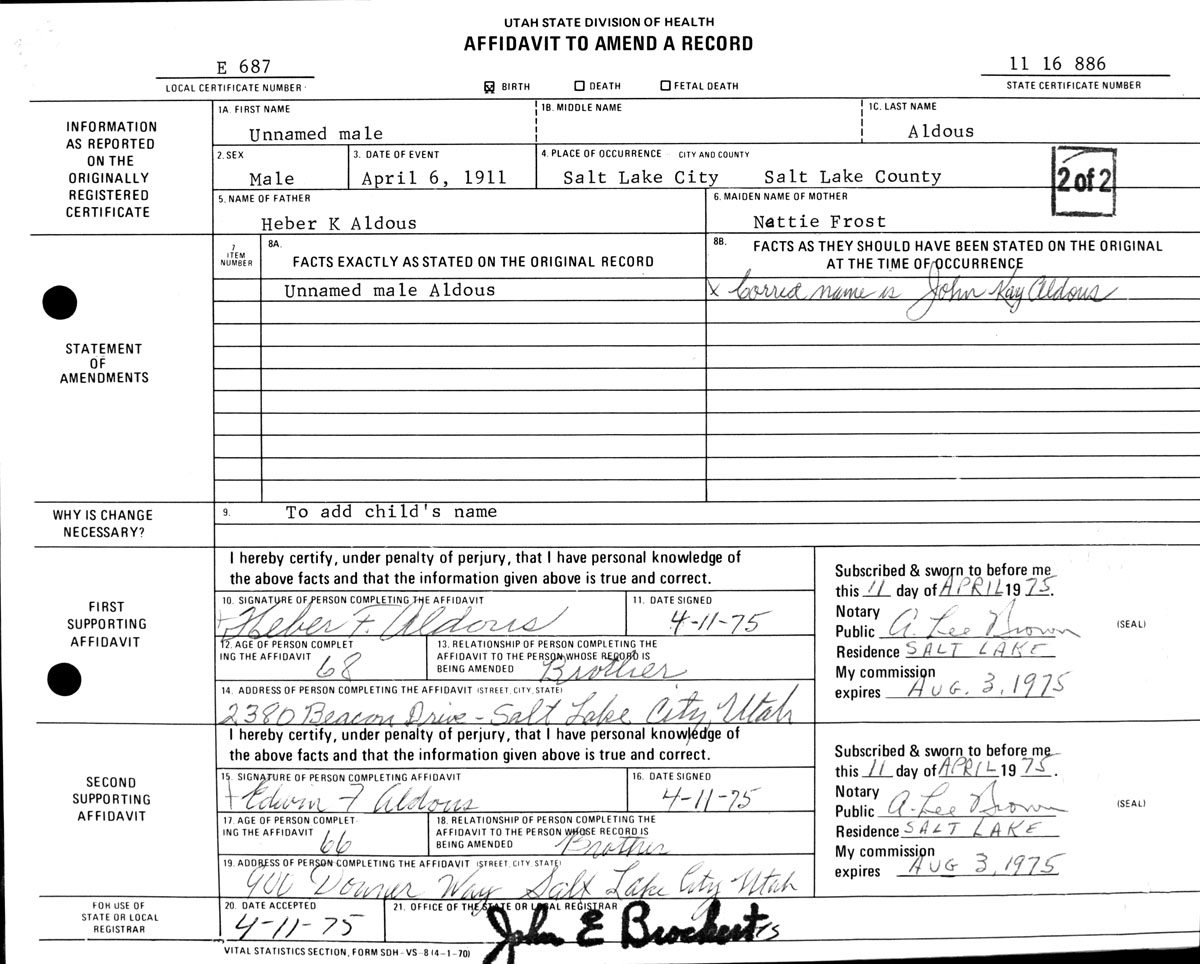 UTAH STATE DIVISION OF HEALTH
AFFIDAVIT TO AMEND A RECORD
E 687
LOCAL CERTIFICATE NUMBER
☒ BIRTH ☐ DEATH ☐ FETAL DEATH
11 16 886
STATE CERTIFICATE NUMBER
INFORMATION
AS REPORTED
ON THE
ORIGINALLY
REGISTERED
CERTIFICATE
1A. FIRST NAME 1B. MIDDLE NAME 1C. LAST NAME
Unnamed male Aldous
2. SEX 3. DATE OF EVENT 4. PLACE OF OCCURRENCE CITY AND COUNTY
Male April 6, 1911 Salt Lake City Salt Lake County
2 of 2
5. NAME OF FATHER 6. MAIDEN NAME OF MOTHER
Heber K Aldous Nettie Frost
STATEMENT
OF
AMENDMENTS
7
ITEM
NUMBER
8A.
FACTS EXACTLY AS STATED ON THE ORIGINAL RECORD
8B. FACTS AS THEY SHOULD HAVE BEEN STATED ON THE ORIGINAL
AT THE TIME OF OCCURRENCE
Unnamed male Aldous
x Correct name is John Kay Aldous
WHY IS CHANGE
NECESSARY?
9. To add child's name
FIRST
SUPPORTING
AFFIDAVIT
I hereby certify, under penalty of perjury, that I have personal knowledge of
the above facts and that the information given above is true and correct.
10. SIGNATURE OF PERSON COMPLETING THE AFFIDAVIT 11. DATE SIGNED
Heber F. Aldous 4-11-75
12. AGE OF PERSON COMPLET
ING THE AFFIDAVIT
68
13. RELATIONSHIP OF PERSON COMPLETING THE
AFFIDAVIT TO THE PERSON WHOSE RECORD IS
BEING AMENDED Brother
14. ADDRESS OF PERSON COMPLETING THE AFFIDAVIT (STREET, CITY, STATE)
2380 Beacon Drive - Salt Lake City, Utah
Subscribed & sworn to before me
this 11 day of APRIL 1975.
Notary
Public A. Lee Brown (SEAL)
Residence SALT LAKE
My commission
expires AUG. 3, 1975
SECOND
SUPPORTING
AFFIDAVIT
I hereby certify, under penalty of perjury, that I have personal knowledge of
the above facts and that the information given above is true and correct.
15. SIGNATURE OF PERSON COMPLETING AFFIDAVIT 16. DATE SIGNED
Edwin F Aldous 4-11-75
17. AGE OF PERSON COMPLET-
ING THE AFFIDAVIT
66
18. RELATIONSHIP OF PERSON COMPLETING THE
AFFIDAVIT TO THE PERSON WHOSE RECORD IS
BEING AMENDED Brother
19. ADDRESS OF PERSON COMPLETING THE AFFIDAVIT (STREET, CITY, STATE)
900 Donner Way Salt Lake City Utah
Subscribed & sworn to before me
this 11 day of APRIL 1975.
Notary
Public A. Lee Brown (SEAL)
Residence SALT LAKE
My commission
expires AUG 3, 1975
FOR USE OF
STATE OR LOCAL
REGISTRAR
20. DATE ACCEPTED 21. OFFICE OF THE STATE OR LOCAL REGISTRAR
4-11-75 John E Brockert
VITAL STATISTICS SECTION, FORM SDH-VS-8 (4-1-70)